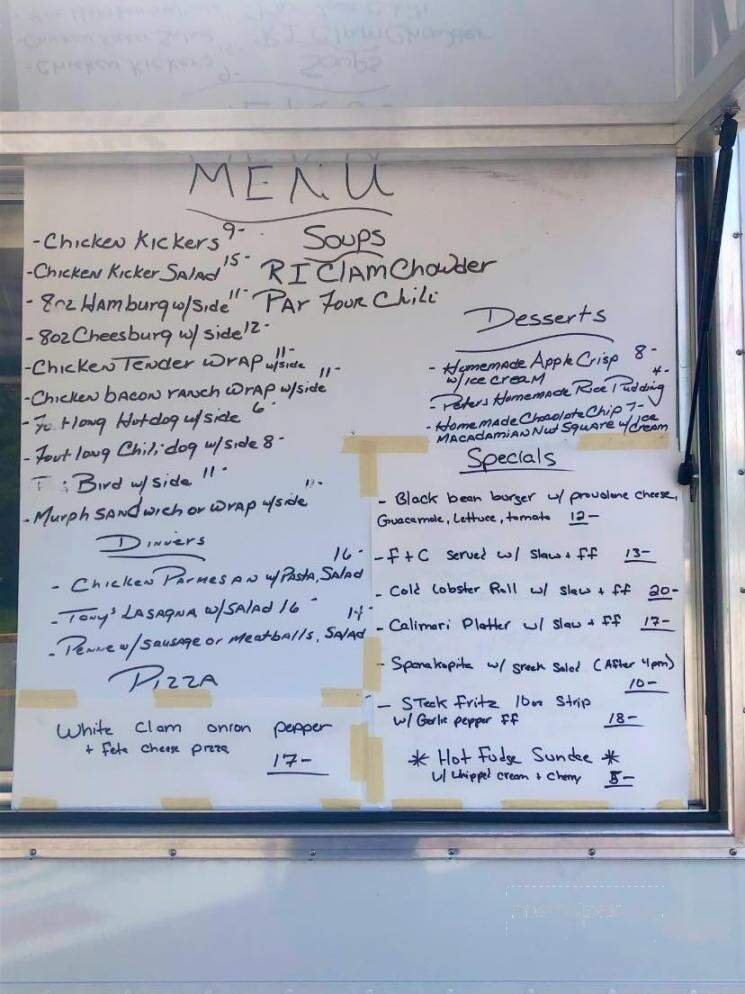 MENU
- Chicken Kickers 9-
- Chicken Kicker Salad 15-
- 8oz Hamburg w/side 11-
- 8oz Cheesburg w/ side 12-
- Chicken Tender Wrap w/side 11-
- Chicken bacon ranch wrap w/side 11-
- Footlong Hotdog w/side 6-
- Foot long Chili dog w/side 8-
Bird w/side 11-
- Murph Sandwich or wrap w/side 11-
Soups
RI Clam Chowder
Par Four Chili
Dinners
- Chicken Parmesan w/ Pasta, Salad 16-
- Tony's Lasagna w/ Salad 16-
- Penne w/ Sausage or Meatballs, Salad 14-
Pizza
White Clam onion pepper
+ feta cheese pizza
17-
Desserts
- Homemade Apple Crisp 8-
w/ice cream
- Peters Homemade Rice Pudding 4-
- Homemade Chocolate Chip 7-
Macadamian Nut Square w/ Ice Cream
Specials
- Black bean burger w/ provolone cheese,
Guacamole, Lettuce, tomato 12-
- F + C served w/ slaw + ff 13-
- Cold Lobster Roll w/ slaw + ff 20-
- Calimari Platter w/ slaw + ff 17-
- Spanakopita w/ greek salad (After 4pm)
10-
- Steak Fritz 10oz Strip
w/ Garlic pepper ff 18-
* Hot Fudge Sundae *
w/ whipped cream + cherry